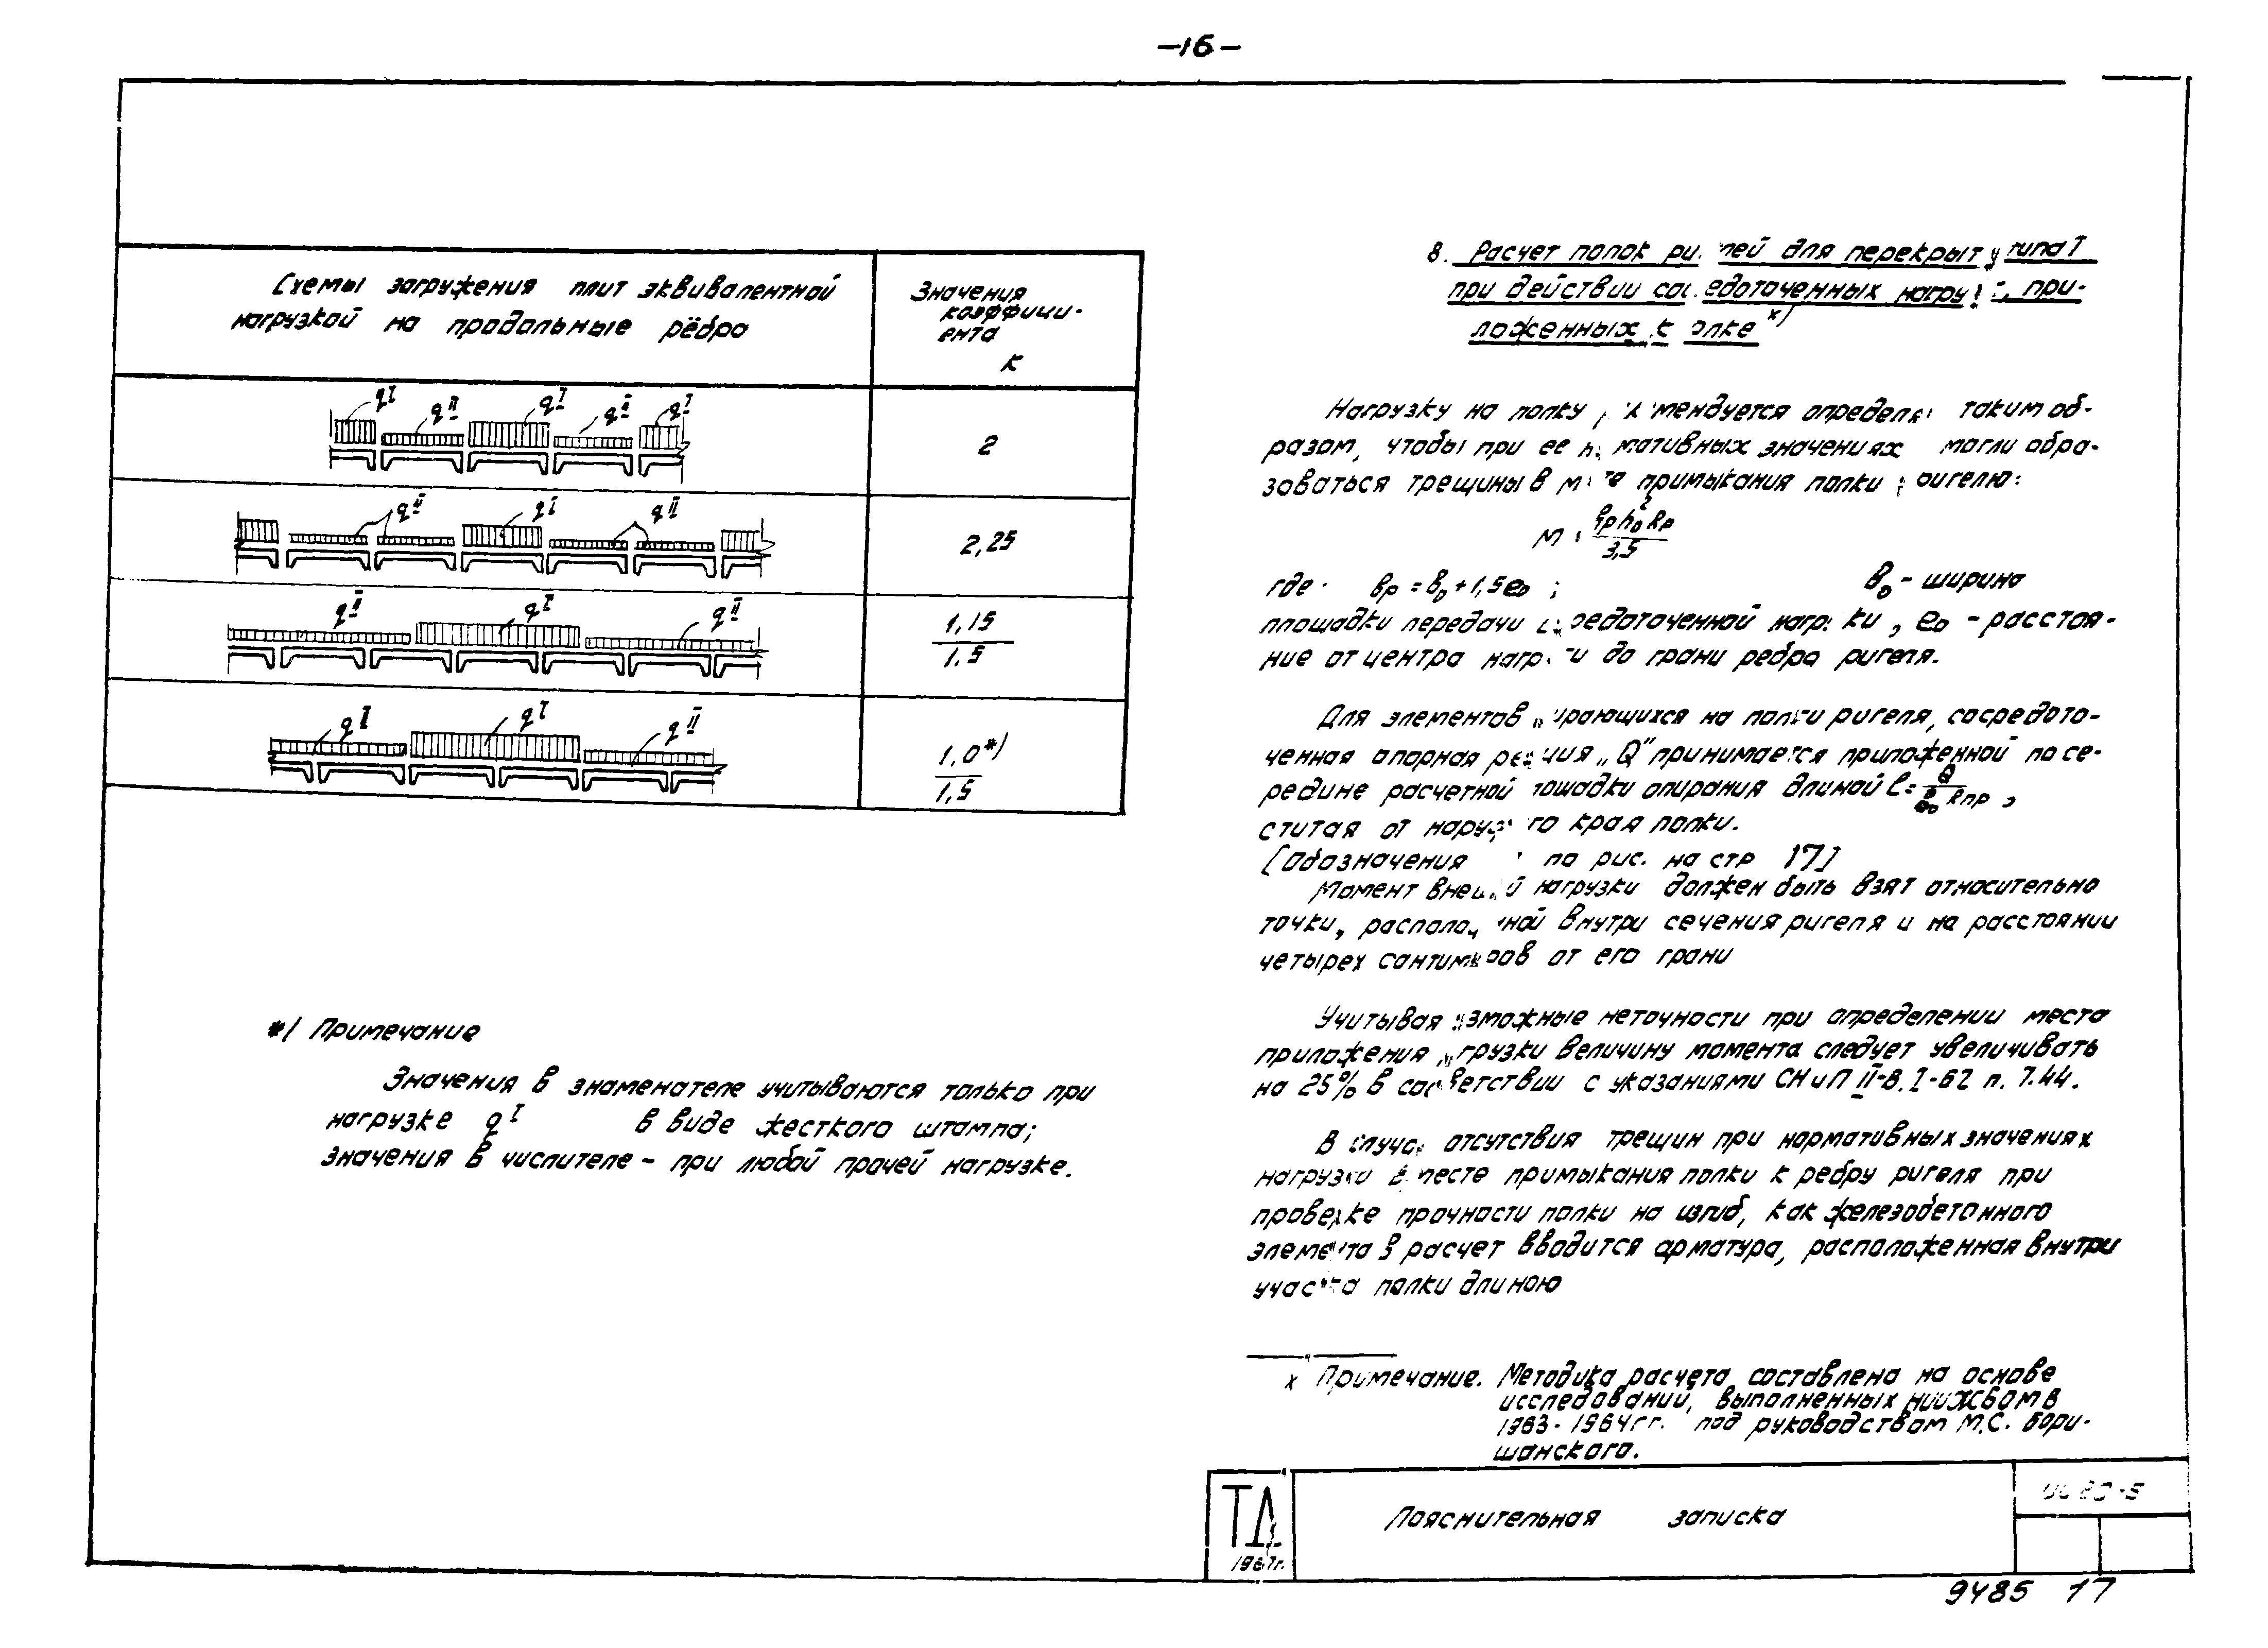 -16-
Схемы загружения плит эквивалентной
нагрузкой на продольные рёбра
Значения
коэффици-
ента
К
qI qII qI qII qI
2
qII qI qII
2,25
qII qI qII
1,15
1,5
qI qI qII
1,0*)
1,5
*) Примечание
Значения в знаменателе учитываются только при
нагрузке qI в виде жесткого штампа;
значения в числителе - при любой прочей нагрузке.
8. Расчет полок для перекрыт типа I
при действии нагру при-
ложенных к
Нагрузку на полку таким об-
разом, чтобы при ее значениях могли обра-
зоваться трещины в примыкания полки ригелю:
М
3,5
где bр = b₀ + 1,5e₀ ; b₀ - ширина
площадки передачи , e₀ - расстоя-
ние от центра до грани ребра ригеля.
Для элементов на полки ригеля, сосредото-
ченная опорная „Q" принимается приложенной по се-
редине расчетной опирания длиной ℓ= Q / b₀ Rпр ,
считая от края полки.
[Обозначения по рис. на стр 17]
Момент нагрузки должен быть взят относительно
точки, внутри сечения ригеля и на расстоянии
четырех от его грани
Учитывая неточности при определении места
приложения величину момента следует увеличивать
на 25% в с указаниями СНиП II-В.I-62 п. 7.44.
В отсутствия трещин при нормативных значениях
нагрузки в месте примыкания полки к ребру ригеля при
проверке прочности полки на изгиб, как железобетонного
элемента в расчет вводится арматура, расположенная внутри
полки длиною
х Примечание. Методика расчета составлена на основе
исследований, выполненных НИИЖБом в
1963-1964гг. под руководством М.С. Бори-
шанского.
ТД
1967г.
Пояснительная записка
9485 17